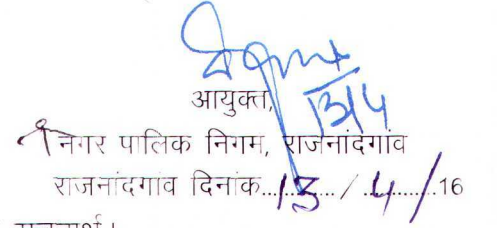 13/4
आयुक्त,
नगर पालिक निगम, राजनांदगांव
राजनांदगांव दिनांक...13.../...4......./16